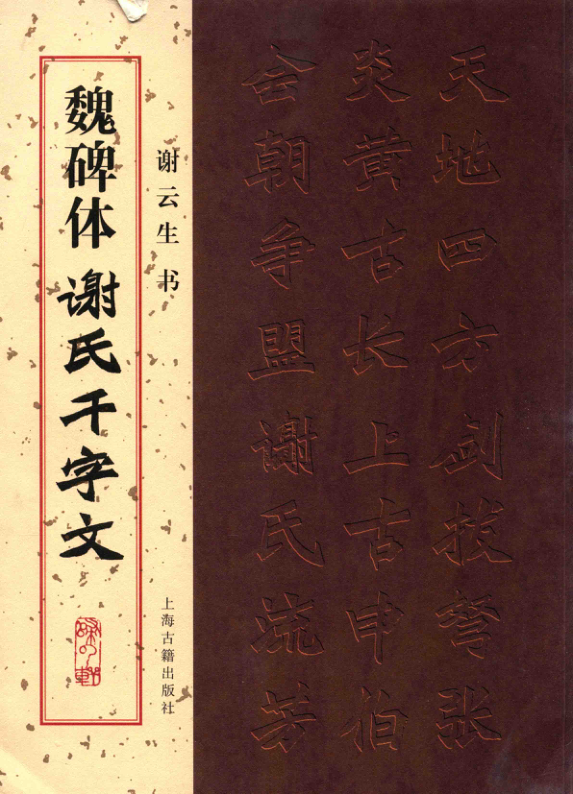 天地四方剑拔弩张
炎黄古长上古申伯
会朝争盟谢氏流芳
谢云生书
上海古籍出版社
魏碑体 谢氏千字文